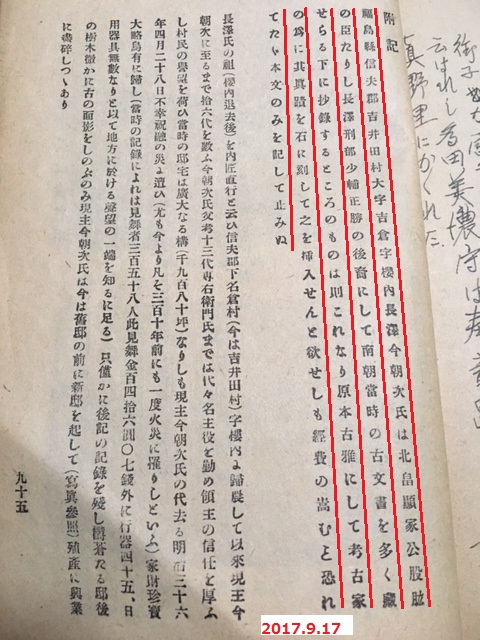 衛子
云はれし
眞野里にかくれた
附記
福島縣信夫郡吉井田村大字吉倉字樓內長澤今朝次氏は北畠顯家公股肱
の臣たりし長澤刑部少輔正勝の後裔にして南朝當時の古文書を多く藏
せらる下に抄錄するところのものは則これなり原本古雅にして考古家
の爲に其眞蹟を石に刻して之を揷入せんと欲せしも經費の嵩むと恐れ
てたゞ本文のみを記して止みぬ
長澤氏の祖(樓內退去後)を內匠直行と云ひ信夫郡下名倉村(今は吉井田村)字樓內よ歸農して以來現主今
朝次に至るまで拾六代を數ふ今朝次氏父考十三代專右衛門氏までは代々名主役を勤め領主の信任を厚ふ
し村民の譽望を荷ひ當時の邸宅は廣大なる構(千九百八十坪)なりしも現主今朝次氏の代去る明治三十六
年四月二十八日不幸祝融の災よ遭ひ(尤も今より凡そ三百十年前にも一度火災に罹りしといふ)家財珍寶
大略烏有に歸し(當時の記錄によれは見舞者三百五十八人此見舞金百四拾六圓〇七錢外に行器四十五、日
用器具無數なりと以て地方に於ける聲望の一端を知るに足る)只僅かに後記の記錄を殘し鬱蒼たる邸後
の樹木微かに古の面影をしのぶのみ現主今朝次氏は今は舊邸の前に新邸を起して(寫眞參照)殖產に興業
に粉碎しつゝあり
九十五
2017.9.17